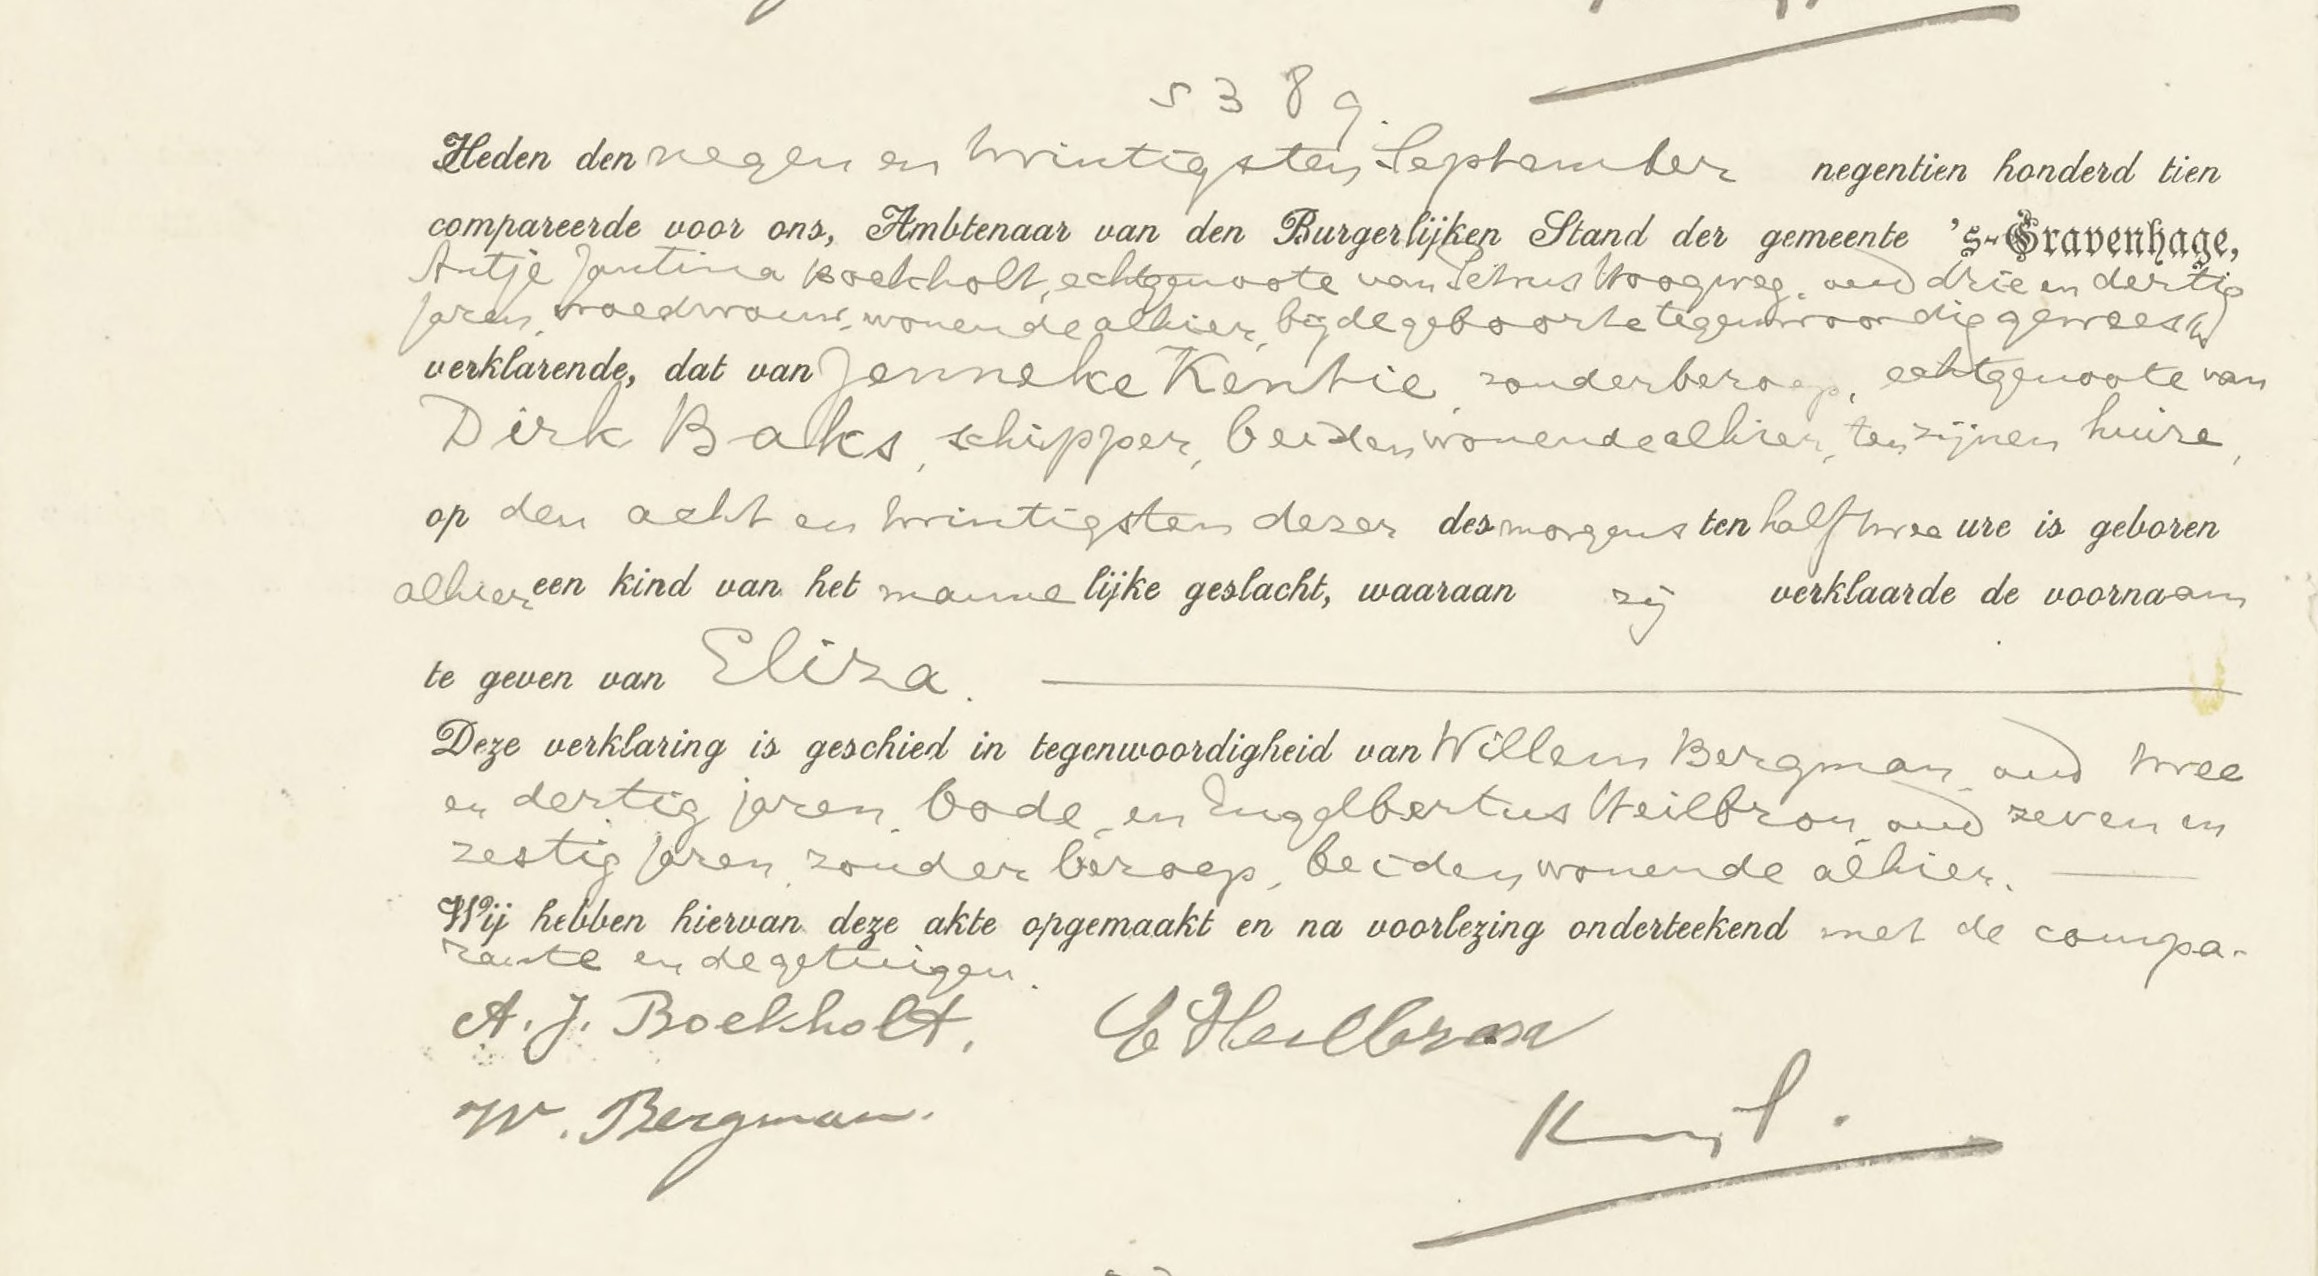 5389.
Heden den negen en twintigsten September negentien honderd tien
compareerde voor ons, Ambtenaar van den Burgerlijken Stand der gemeente 's-Gravenhage,
Antje Jantina Boekholt, echtgenoote van Petrus Hoogweg, oud drie en dertig
jaren, vroedvrouw, wonende alhier, bij de geboorte tegenwoordig geweest
verklarende, dat van Jenneke Kentie, zonder beroep, echtgenoote van
Dirk Baks, schipper, beiden wonende alhier, ten zijnen huize,
op den acht en twintigsten dezer des morgens ten half twee ure is geboren
alhier een kind van het mannelijke geslacht, waaraan zij verklaarde de voornaam
te geven van Eliza.
Deze verklaring is geschied in tegenwoordigheid van Willem Bergman, oud twee
en dertig jaren, bode, en Engelbertus Heilbron, oud zeven en
zestig jaren, zonder beroep, beiden wonende alhier.
Wij hebben hiervan deze akte opgemaakt en na voorlezing onderteekend met de compa-
rante en de getuigen.
A. J. Boekholt, E Heilbron
W. Bergman.